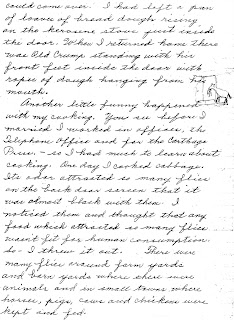 could come over. I had left a pan
of loaves of bread dough rising
on the kerosene stove just inside
the door. When I returned home there
was Old Crump standing with his
front feet inside the door with
ropes of dough hanging from his
mouth.
Another little funny happened
with my cooking. You see before I
married I worked in offices, the
Telephone Office and for the Carthage
Press - so I had much to learn about
cooking. One day I cooked cabbage.
Its odor attracted so many flies
on the back door screen that it
was almost black with them. I
noticed them and thought that any
food which attracted so many flies
wasn't fit for human consumption
so I threw it out. There were
many flies around farm yards
and barn yards where there were
animals and in small towns where
horses, pigs, cows and chickens were
kept and fed.